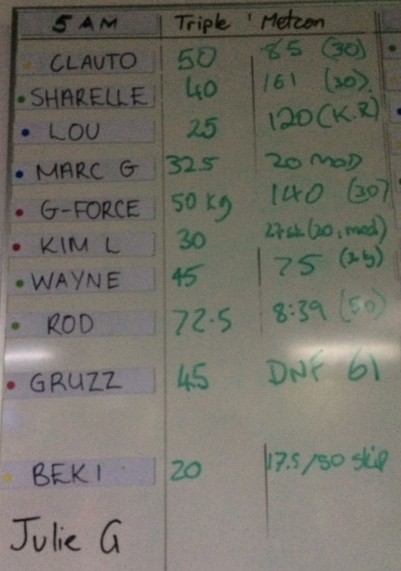 5 AM Triple Metcon
CLAUTO 50 85 (30)
SHARELLE 40 161 (30)
LOU 25 120 (K.R)
MARC G 32.5 20 mod
G-FORCE 50 kg 140 (30)
KIM L 30 (20, mod)
WAYNE 45 75
ROD 72.5 8:39 (50)
GRUZZ 45 DNF 61
BEKI 20 17.5/50 skip
Julie G